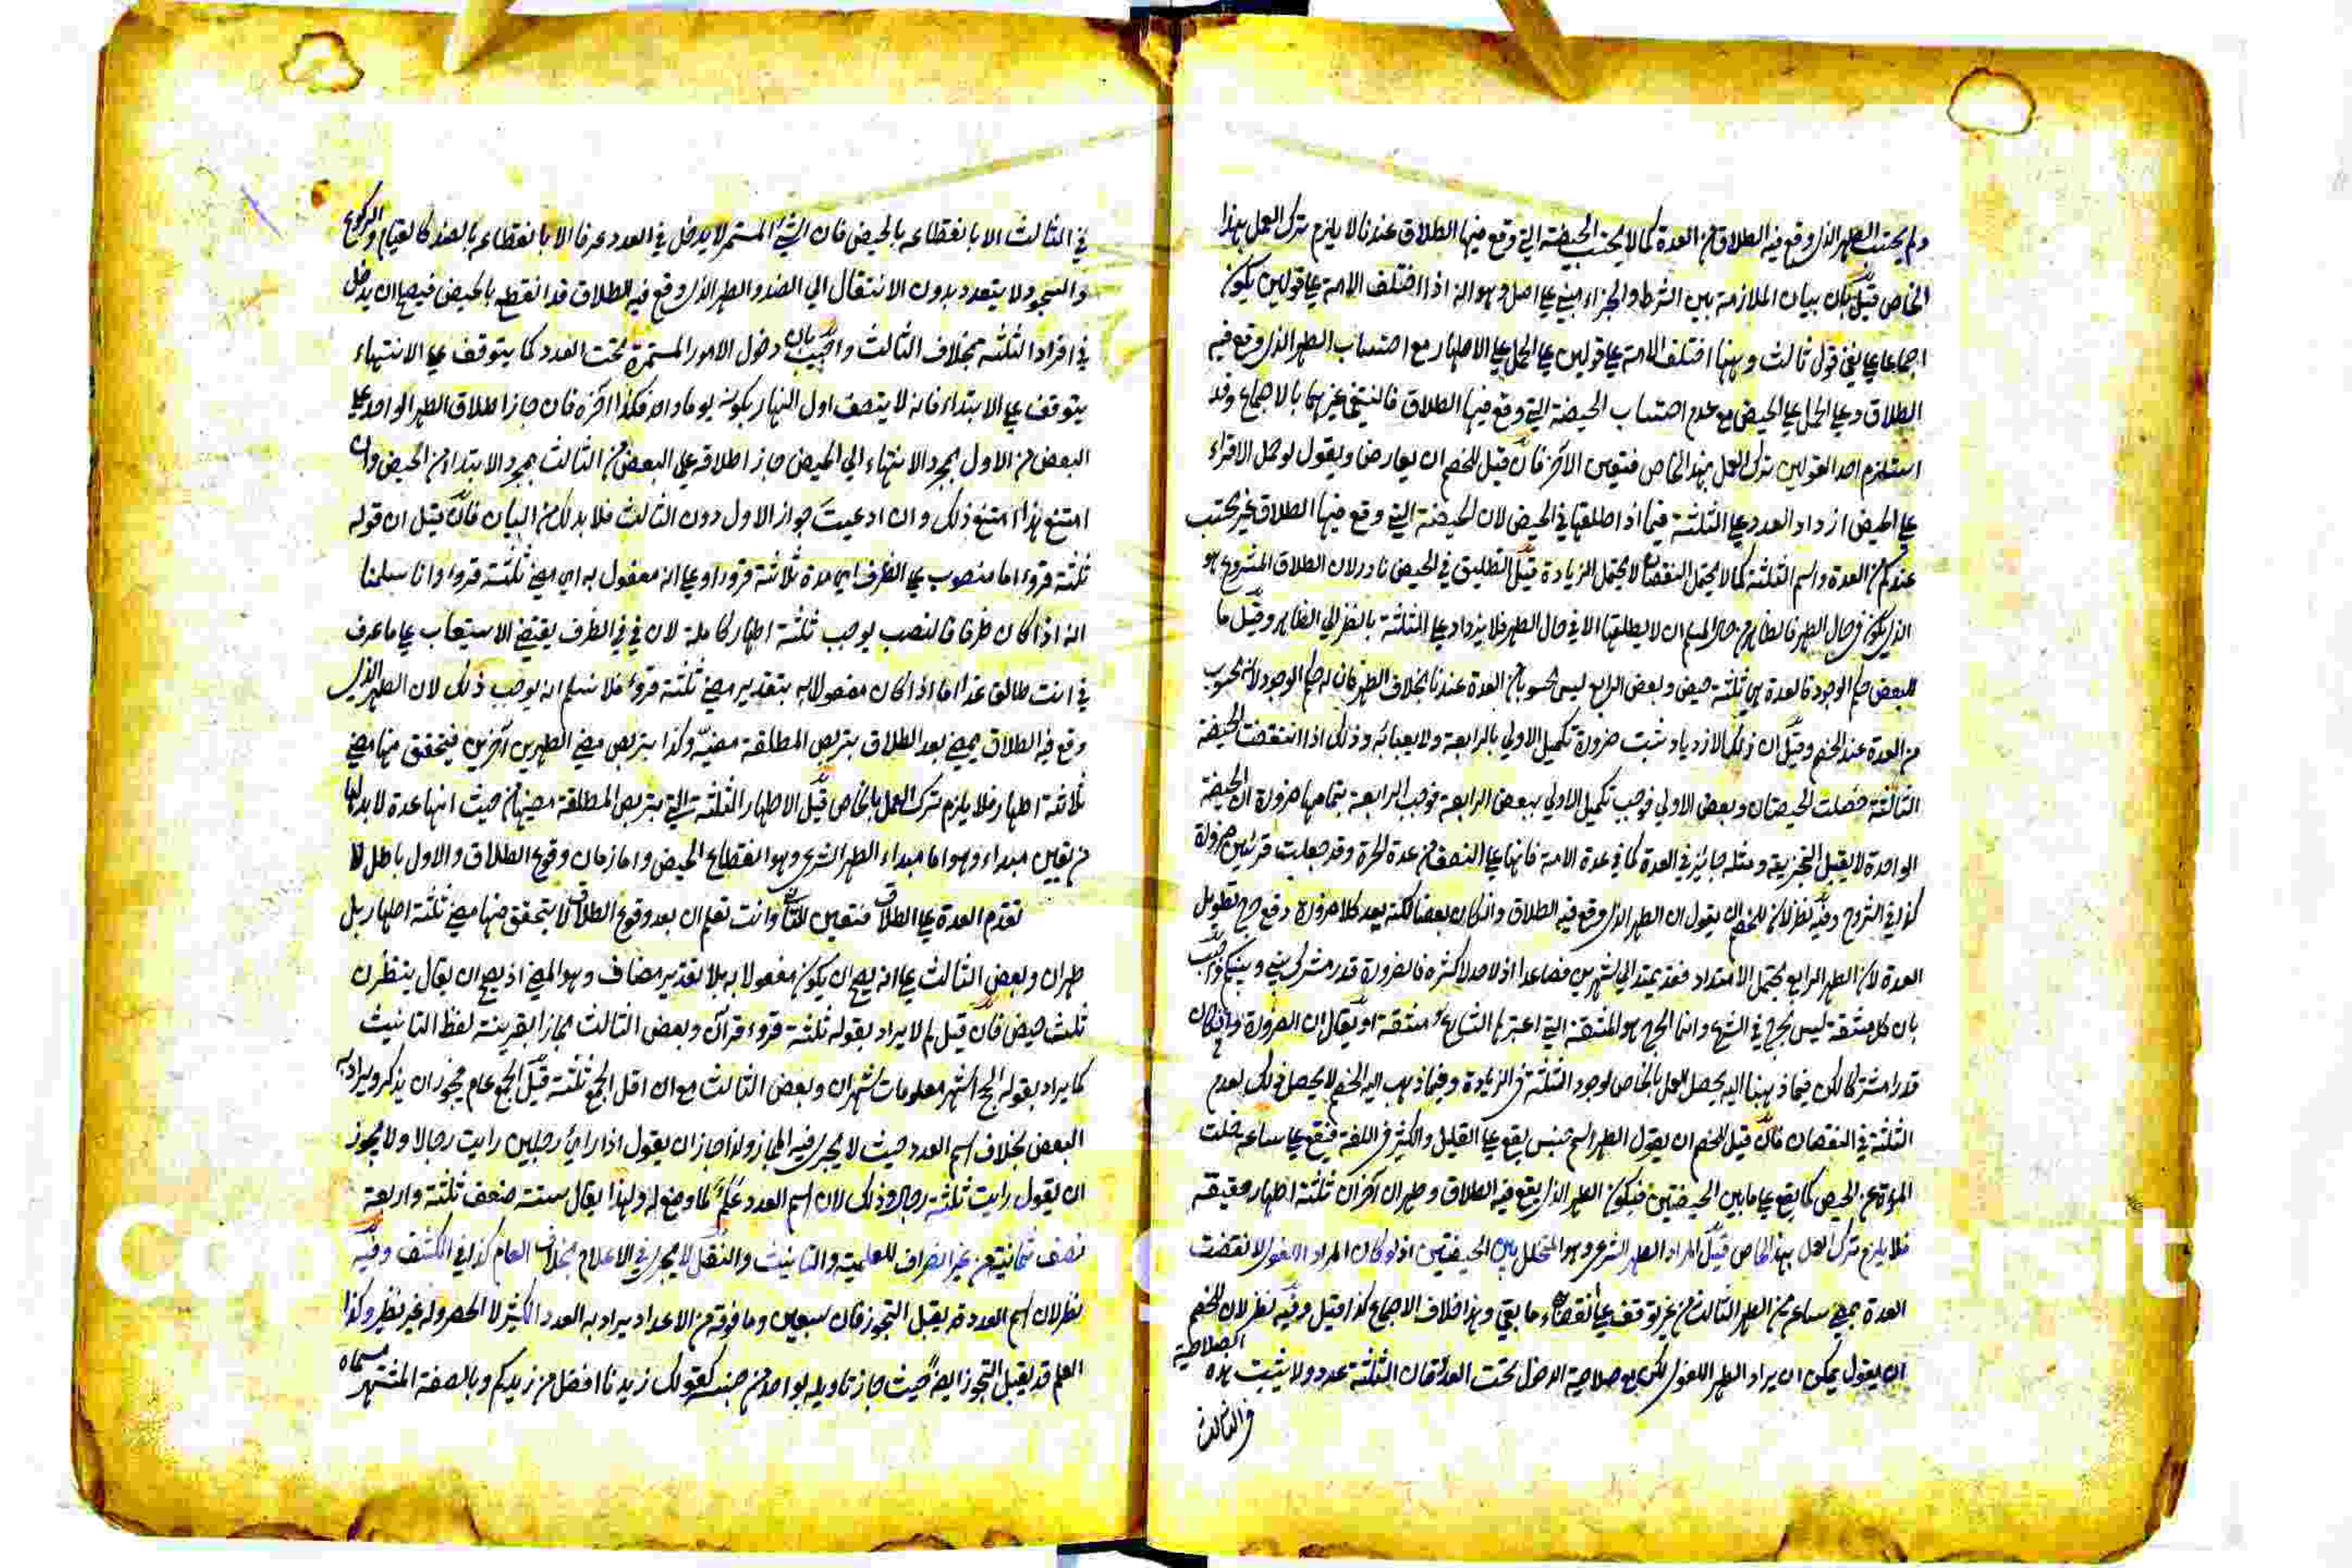 ولم يحتسب الطهر الذى وقع فيه الطلاق من العدة كما لا يحتسب الحيضة التى وقع فيها الطلاق عندنا لا يلزم ترك العمل بهذا
الخاص قيل كان بيان الملازمة بين الشرط والجزاء مبنى على اصل وهو انه اذا اختلف الامة على قولين يكون
اجماعا على نفى قول ثالث وههنا اختلف الامة على قولين على الحمل على الاطهار مع احتساب الطهر الذى وقع فيه
الطلاق وعلى الحمل على الحيض مع عدم احتساب الحيضة التى وقع فيها الطلاق فانتفى غيرهما بالاجماع وقد
استلزم احد القولين ترك العمل بهذا الخاص فتعين الآخر فان قيل للخصم ان يعارض ويقول لو حمل الاقراء
على الحيض ازداد العدد على الثلثة فيما اذا طلقها فى الحيض لان الحيضة التى وقع فيها الطلاق غير محتسب
عندكم من العدة واسم الثلثة كما لا يحتمل النقصان لا يحتمل الزيادة قيل التطليق فى الحيض نادر لان الطلاق المشروع هو
الذى يكون فى حال الطهر فالظاهر من حال المسلم ان لا يطلقها الا فى حال الطهر فلا يزداد على الثلثة بالنظر الى الظاهر وقيل ما
للبعض حكم الوجود فالعدة هى ثلثة حيض وبعض الرابع ليس بمحسوب من العدة عندنا بخلاف الطهر فان له حكم الوجود لانه محسوب
من العدة عند الخصم وقيل ان ذلك الازدياد ثبت ضرورة تكميل الاولى بالرابعة ولا يعبأ به وذلك اذا انتقضت الحيضة
الثالثة حصلت الحيضتان وبعض الاولى فوجب تكميل الاولى ببعض الرابعة فوجب الرابعة بتمامها ضرورة ان الحيضة
الواحدة لا يقبل التجزية ومثله جائز فى العدة كما فى عدة الامة فانها على النصف من عدة الحرة وقد جعلت قرئين ضرورة
كذا فى الشروح وفيه نظر لان للخصم ان يقول ان الطهر الذى وقع فيه الطلاق وان كان بعضا لكنه يعد كلا ضرورة دفع حرج تطويل
العدة لان الطهر الرابع يحتمل الامتداد فقد يمتد الى شهرين فصاعدا اذ لا حد لاكثره فالضرورة قدر مشترك بينى وبينكم واجيب
بان كل مشقة ليس بحرج فى الشرع وانما الحرج هو المشقة التى اعتبرها الشارع مشقة او يقال ان الضرورة وان كان
قدرا مشتركا لكن فيما ذهبنا اليه يحصل العمل بالخاص لوجود الثلثة فى الزيادة وفيما ذهب اليه الخصم لا يحصل ذلك لعدم
الثلثة فى النقصان فان قيل للخصم ان يقول الطهر اسم جنس يقع على القليل والكثير فى اللغة فيقع على ساعة خلت
المرءة عن الحيض كما يقع على ما بين الحيضتين فيكون الطهر الذى يقع فيه الطلاق وطهران آخران ثلثة اطهار حقيقة
فلا يلزم ترك العمل بهذا الخاص قيل المراد الطهر الشرعى وهو المتخلل بين الحيضتين اذ لو كان المراد اللغوى لانقضت
العدة بمضى ساعة من الطهر الثالث من غير توقف على انقضاء ما بقى وهذا خلاف الاجماع كذا قيل وفيه نظر لان للخصم
ان يقول يمكن ان يراد الطهر اللغوى لكن مع صلاحية الدخول تحت العدد فان الثلثة عدد ولا يثبت هذه
الصلاحية
فى الثالث
فى الثالث الا بانقطاعه بالحيض فان الشئ المستمر لا يدخل فى العدد عرفا الا بانقطاعه بالضد كالقيام والركوع
والسجود لا يتعدد بدون الانتقال الى الضد والطهر الذى وقع فيه الطلاق قد انقطع بالحيض فيصح ان يدخل
فى افراد الثلثة بخلاف الثالث واجيب بان دخول الامور المستمرة تحت العدد كما يتوقف على الانتهاء
يتوقف على الابتداء فانه لا يتصف اول النهار بكونه يوما واحدا فكذا آخره فان جاز اطلاق الطهر الواحد على
البعض من الاول بمجرد الانتهاء الى الحيض جاز اطلاقه على البعض من الثالث بمجرد الابتداء من الحيض وان
امتنع هذا امتنع ذلك وان ادعيت جواز الاول دون الثالث فلا بد لك من البيان فان قيل ان قوله
ثلثة قروء اما منصوب على الظرف اى مدة ثلاثة قروء او على انه مفعول به اى مضى ثلثة قروء وانا سلمنا
انه اذا كان ظرفا فالنصب يوجب ثلثة اطهار كاملة لان فى فى الظرف يقتضى الاستيعاب على ما عرف
فى انت طالق غدا اما اذا كان مفعولا به بتقدير مضى ثلثة قروء فلا نسلم انه يوجب ذلك لان الطهر الذى
وقع فيه الطلاق يمضى بعد الطلاق بتربص المطلقة مضيه وكذا بتربص مضى الطهرين آخرين فيتحقق منها مضى
ثلاثة اطهار فلا يلزم ترك العمل بالخاص قيل الاطهار الثلثة التى بتربص المطلقة مضيها من حيث انها عدة لا بد لها
من تعيين مبداء وهو اما مبداء الطهر الشرعى وهو انقطاع الحيض واما زمان وقوع الطلاق والاول باطل لا
تقدم العدة على الطلاق فتعين الثانى وانت تعلم ان بعد وقوع الطلاق لا يتحقق منها مضى ثلثة اطهار بل
طهران وبعض الثالث على انه يصح ان يكون مفعولا به بلا تقدير مضاف وهو المضى اذ يصح ان يقال ينتظرن
ثلث حيض فان قيل لم لا يراد بقوله ثلثة قروء قرآن وبعض الثالث مجازا بقرينة لفظ التانيث
كما يراد بقوله الحج اشهر معلومات شهران وبعض الثالث مع ان اقل الجمع ثلثة قيل الجمع عام فيجوز ان يذكر ويراد به
البعض بخلاف اسم العدد حيث لا يجرى فيه المجاز ولذا جاز ان يقول اذا راى رجلين رايت رجالا ولا يجوز
ان يقول رايت ثلثة رجال وذلك لان اسم العدد علم لما وضع له ولهذا يقال ستة ضعف ثلثة واربعة
نصف ثمانية من غير انصراف للعلمية والتانيث والنقل لا يجرى فى الاعلام بخلاف العام كذا فى الكشف وفيه
نظر لان اسم العدد قد يقبل التجوز فان سبعين وما فوقه من الاعداد يراد به العدد الكثير لا الحصر وله غير نظير وكذا
العلم قد يقبل التجوز ايضا حيث جاز تاويله بواحد من جنسه كقولك زيدنا افضل من زيدكم وبالصفة المشتهر
مسماه